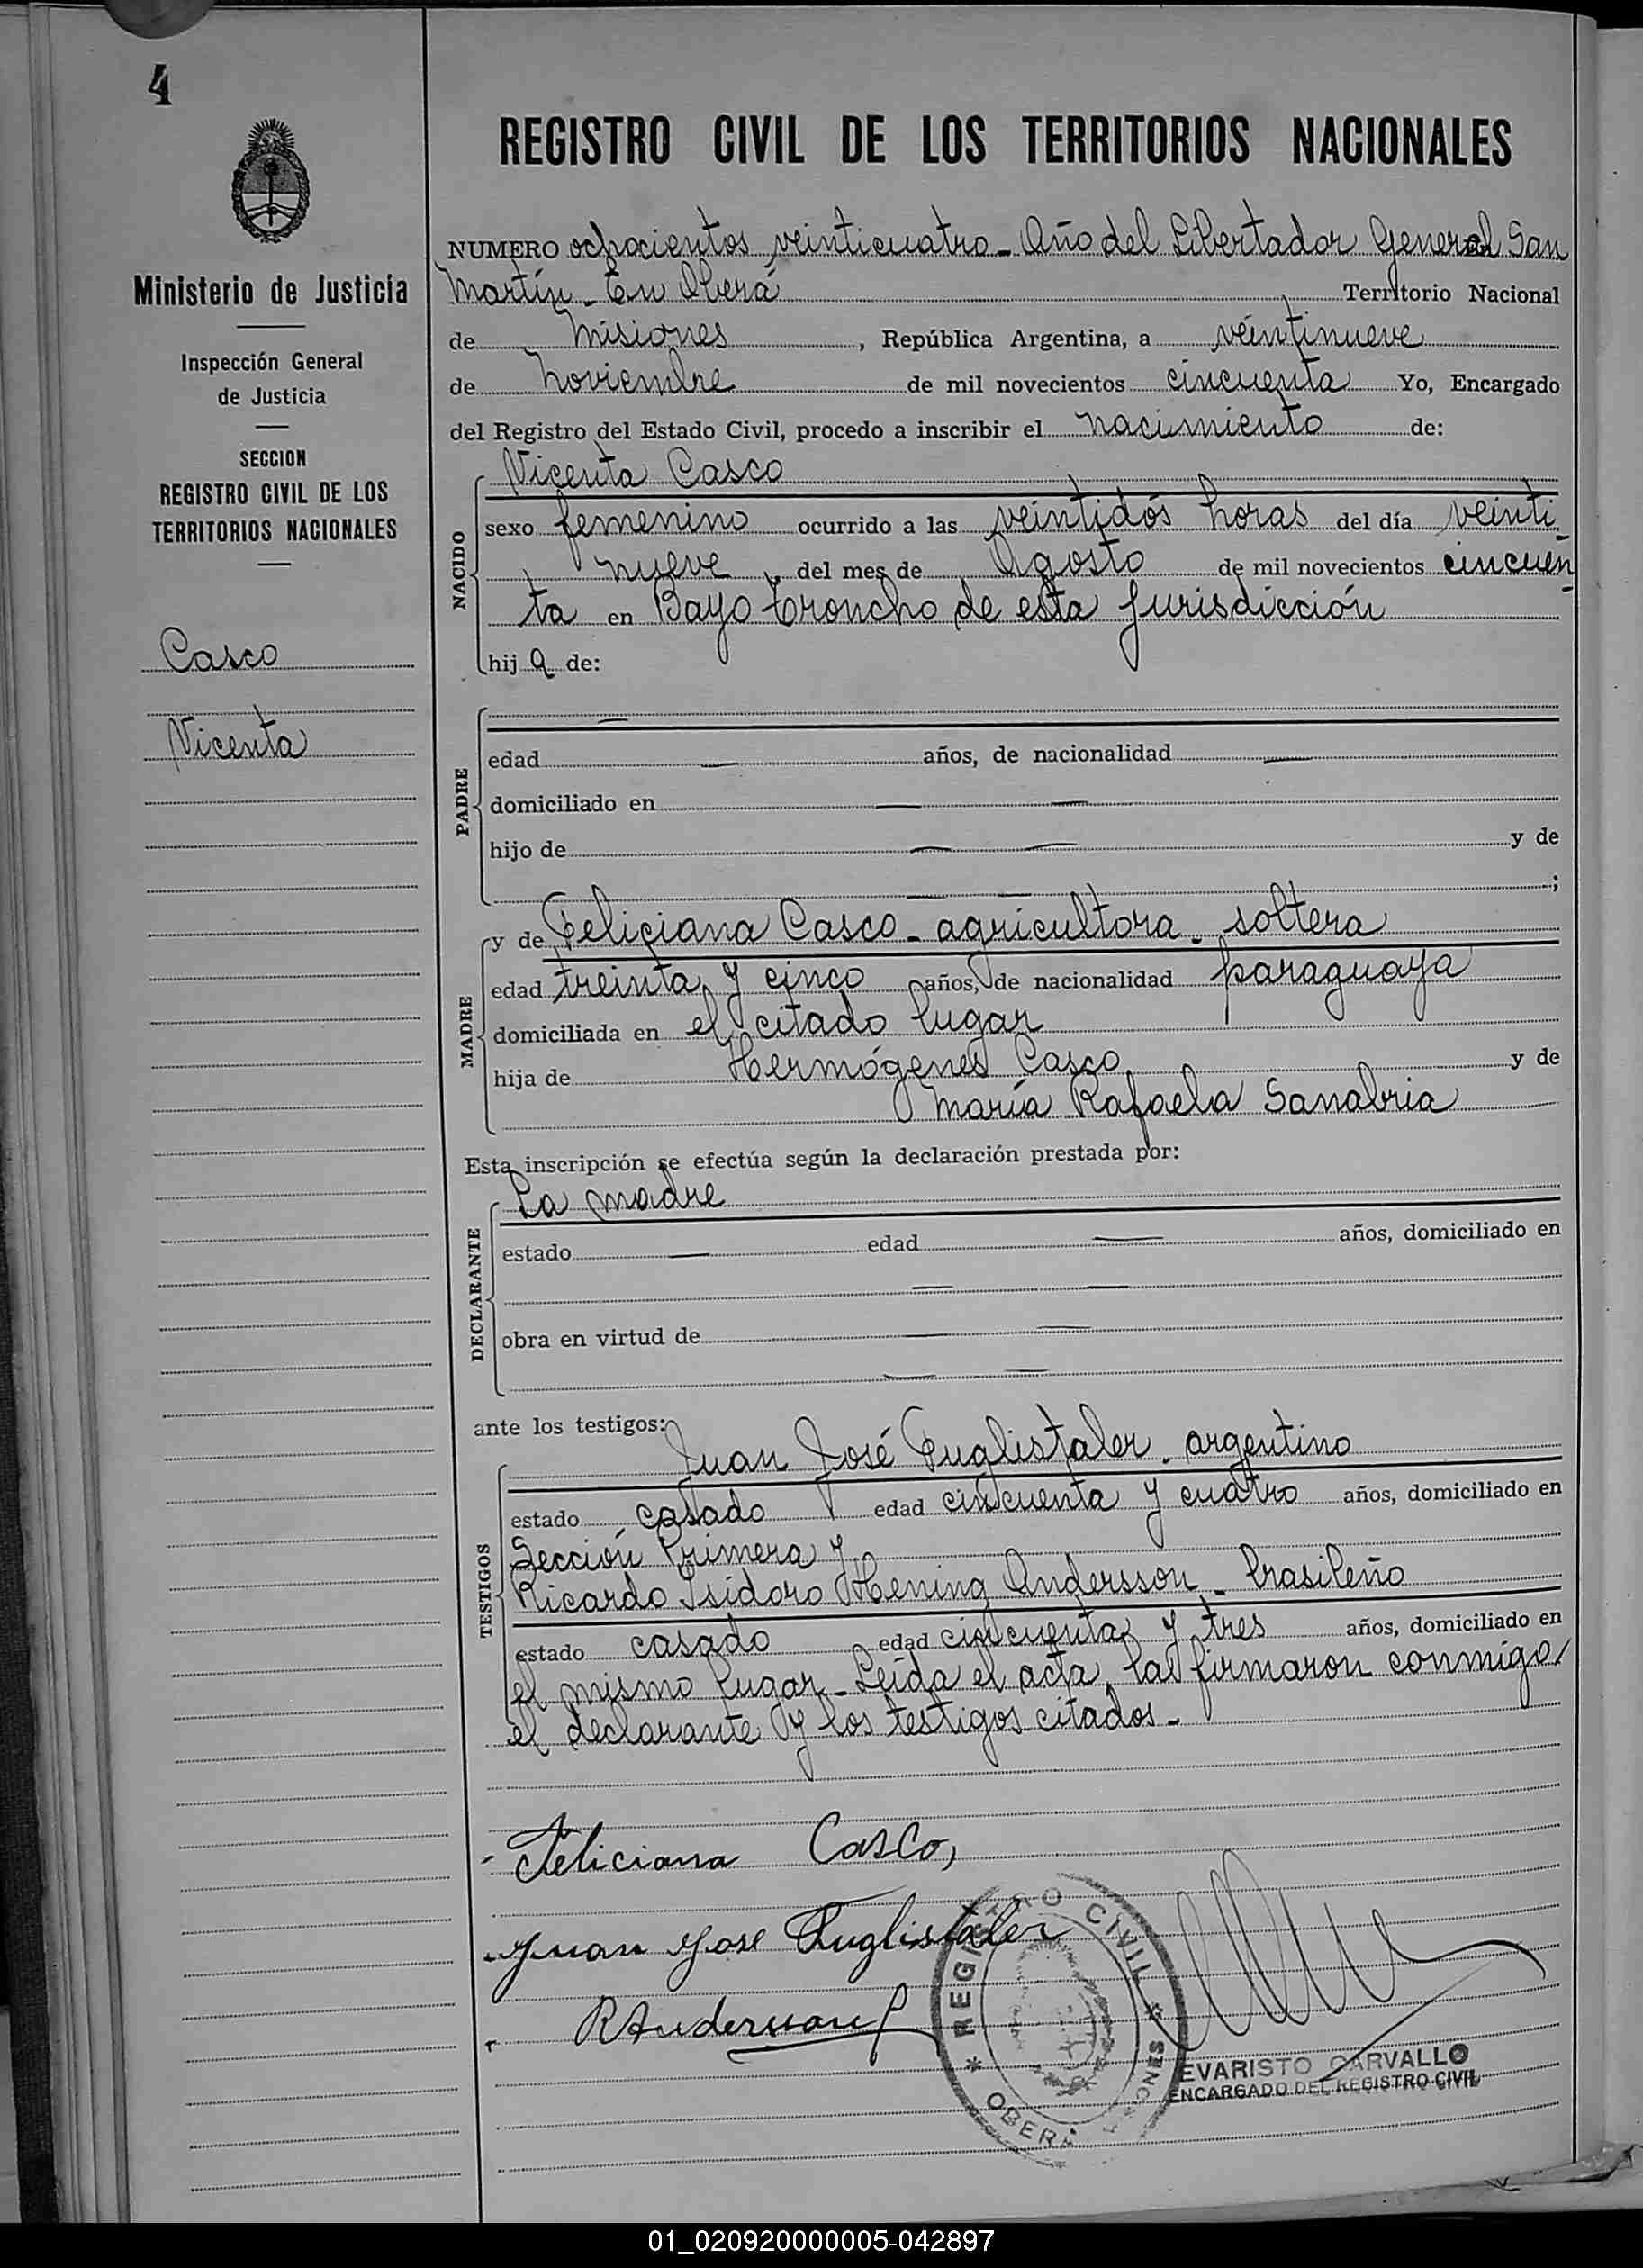 4
REGISTRO CIVIL DE LOS TERRITORIOS NACIONALES
Ministerio de Justicia
Inspección General
de Justicia
SECCION
REGISTRO CIVIL DE LOS
TERRITORIOS NACIONALES
Casco
Vicenta
NUMERO ochocientos veinticuatro - Año del Libertador General San
Martín - En Oberá Territorio Nacional
de Misiones, República Argentina, a veintinueve
de Noviembre de mil novecientos cincuenta Yo, Encargado
del Registro del Estado Civil, procedo a inscribir el nacimiento de:
NACIDO
Vicenta Casco
sexo femenino ocurrido a las veintidós horas del día veinti
nueve, del mes de Agosto de mil novecientos cincuen
ta en Bayo Troncho de esta jurisdicción
hij a de:
PADRE
edad — años, de nacionalidad —
domiciliado en — —
hijo de — — y de
— — ;
MADRE
y de Feliciana Casco - agricultora - soltera
edad treinta y cinco años, de nacionalidad paraguaya
domiciliada en el citado lugar
hija de Hermógenes Casco y de
María Rafaela Sanabria
Esta inscripción se efectúa según la declaración prestada por:
DECLARANTE
La madre
estado — edad — años, domiciliado en
— —
obra en virtud de — —
— —
ante los testigos:
TESTIGOS
Juan José Fuglistaler - argentino
estado casado edad cincuenta y cuatro años, domiciliado en
Sección Primera y
Ricardo Isidoro Hening Andersson - brasileño
estado casado edad cincuenta y tres años, domiciliado en
el mismo lugar - Leída el acta, la firmaron conmigo
el declarante y los testigos citados -
Feliciana Casco,
Juan Jose Fuglistaler
RAndersson
REGISTRO CIVIL
OBERÁ
MISIONES
EVARISTO CARVALLO
ENCARGADO DEL REGISTRO CIVIL
01_020920000005-042897